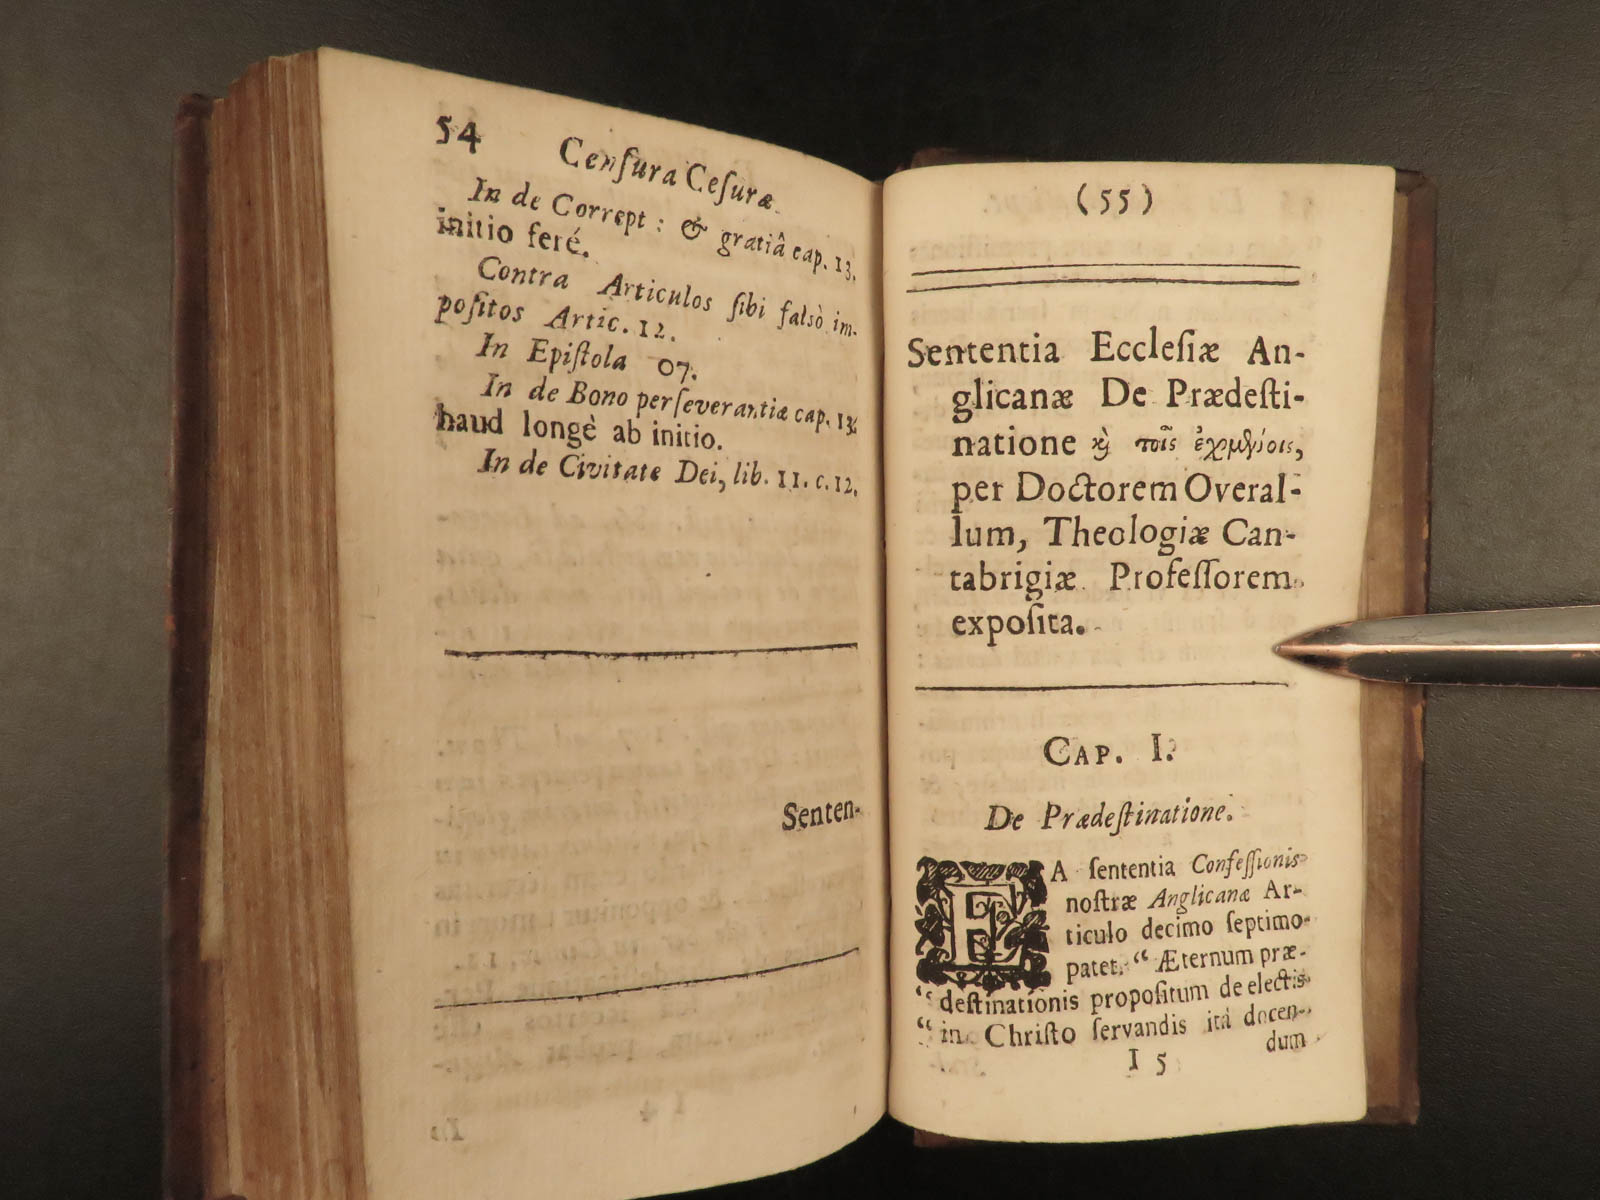 54
Cenſura Ceſuræ.
In de Corrept : & gratiâ cap. 13.
initio feré.
Contra Articulos ſibi falsò im-
poſitos Artic. 12.
In Epiſtola 07.
In de Bono perſeverantiæ cap. 13.
haud longè ab initio.
In de Civitate Dei, lib. 11. c. 12.
Senten-
(55)
Sententia Eccleſiæ An-
glicanæ De Prædeſti-
natione ϗ τοῖς ἐχομένοις,
per Doctorem Overal-
lum, Theologiæ Can-
tabrigiæ Profeſſorem
expoſita.
CAP. I.
De Prædeſtinatione.
EA ſententia Confeſſionis
noſtræ Anglicanæ Ar-
ticulo decimo ſeptimo
patet. “ Æternum præ-
“ deſtinationis propoſitum de electis
“ in Chriſto ſervandis itá docen-
dum
I 5